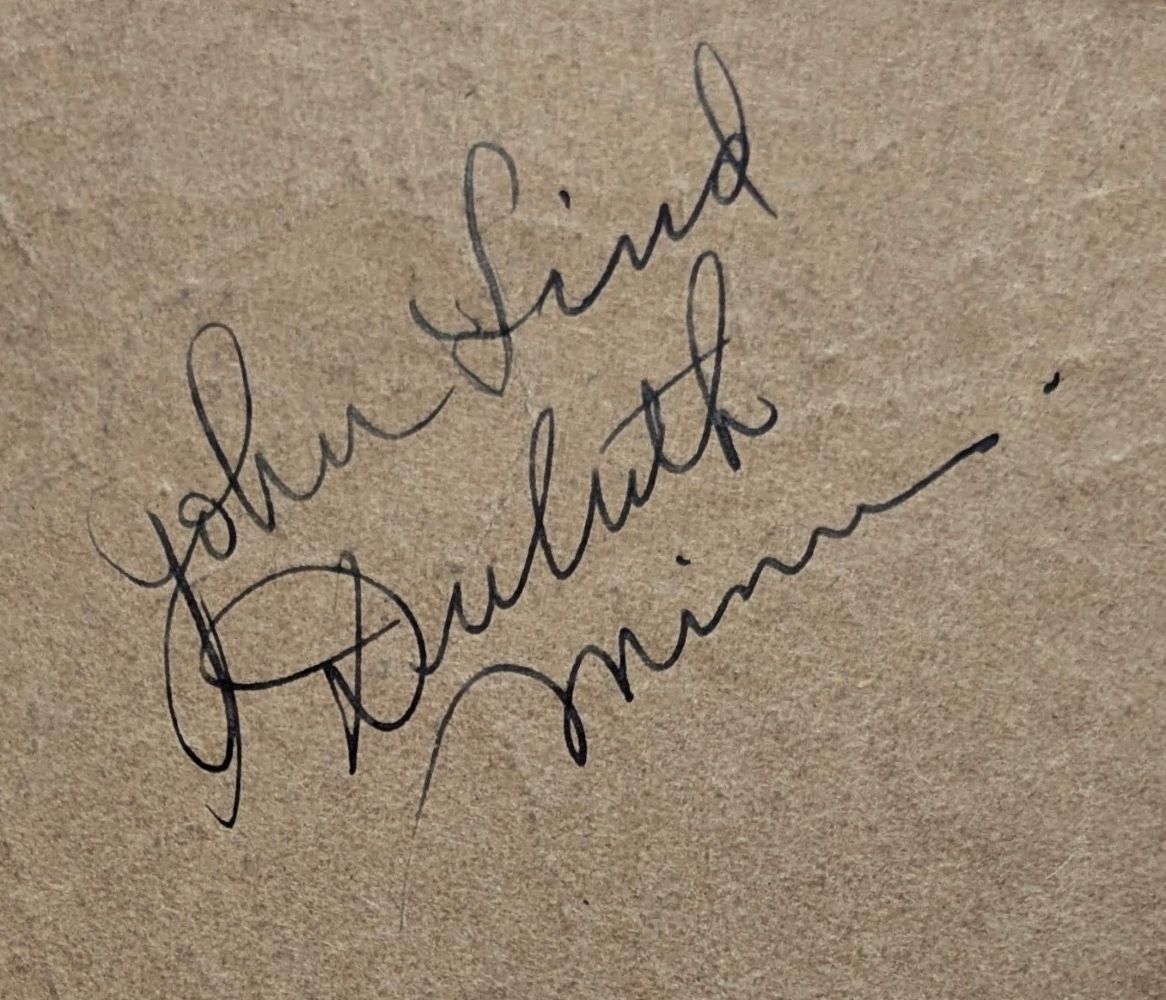 John Lind
Duluth
Minn.